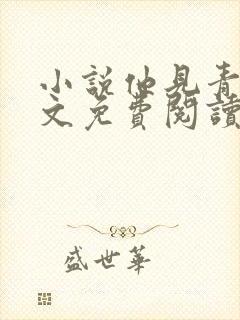 小說仙見青
文免費閱讀
盛世華